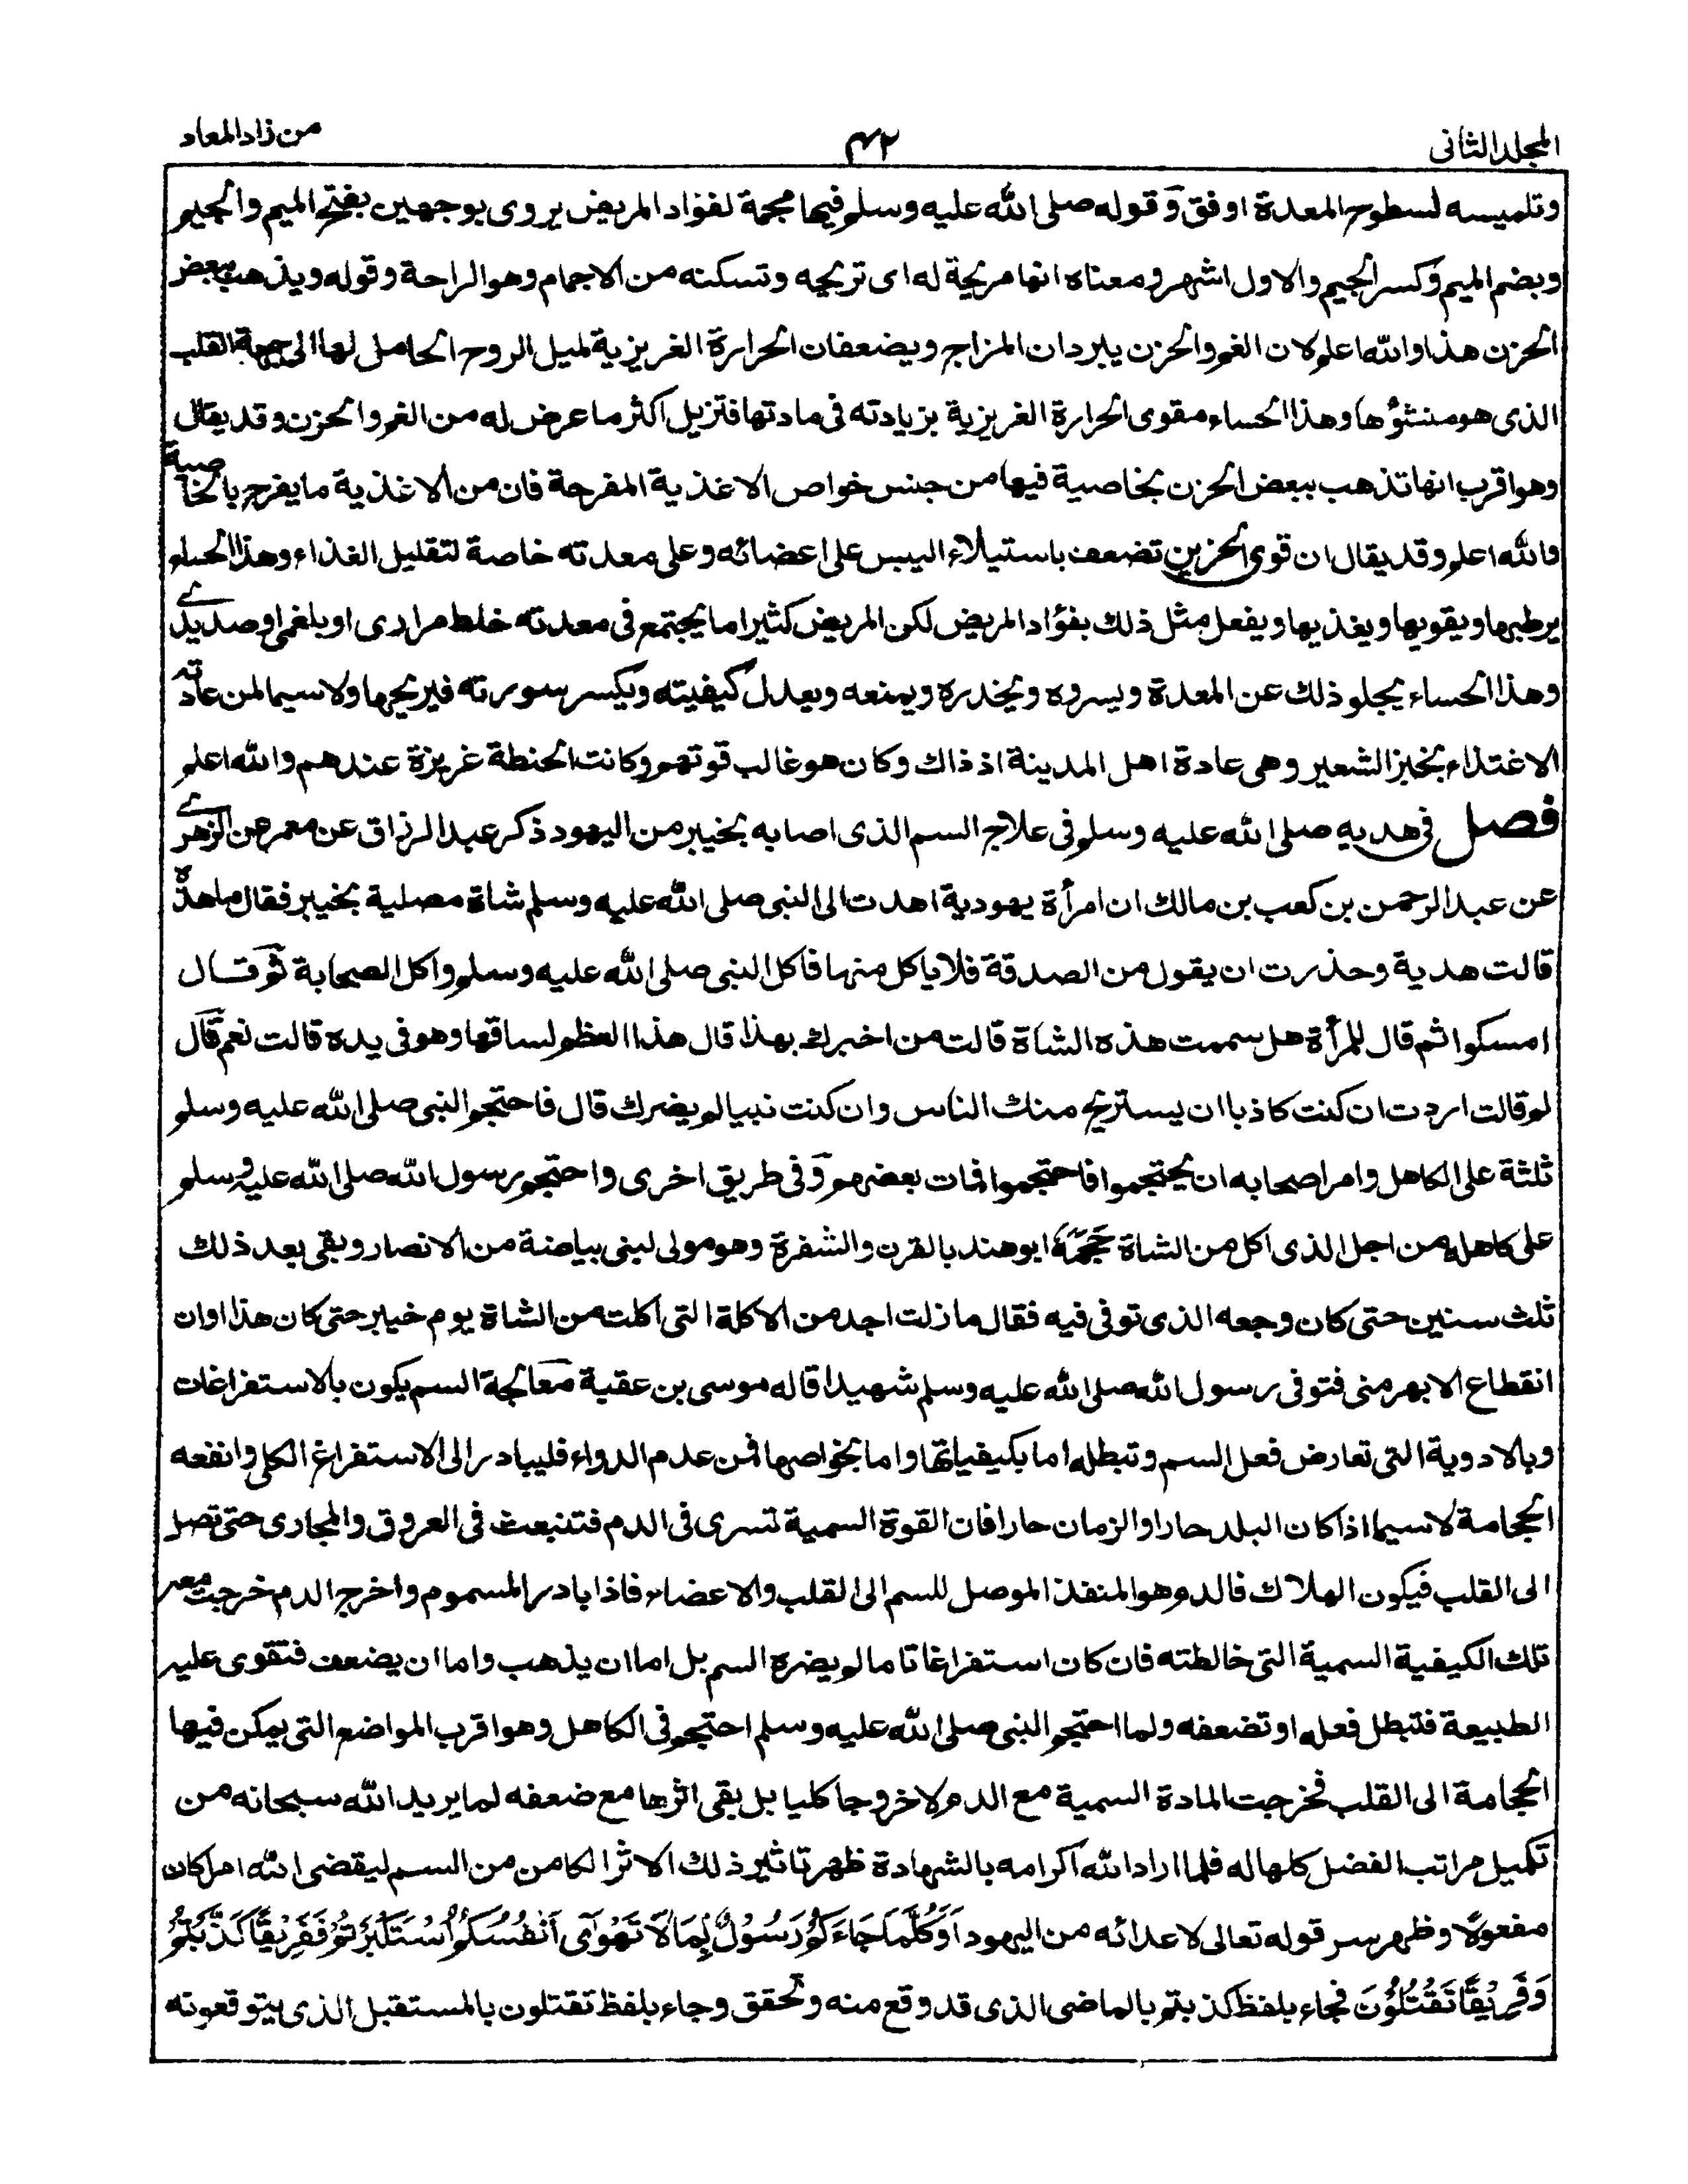 المجلد الثانى ٤٢ من زاد المعاد
وتلميسه لسطوح المعدة اوفق وقوله صلى الله عليه وسلم فيها مجمة لفؤاد المريض يروى بوجهين بفتح الميم والجيم
وبضم الميم وكسر الجيم والاول اشهر ومعناه انها مريحة له اى تريحه وتسكنه من الاجمام وهو الراحة وقوله ويذهب ببعض
الحزن هذا والله اعلم لان الغم والحزن يبردان المزاج ويضعفان الحرارة الغريزية لميل الروح الحامل لها الى جهة القلب
الذى هو منشؤها وهذا الحساء مقوى الحرارة الغريزية بزيادته فى مادتها فتزيل اكثر ما عرض له من الغم والحزن وقد يقال
وهو اقرب انها تذهب ببعض الحزن بخاصية فيها من جنس خواص الاغذية المفرحة فان من الاغذية ما يفرح بالخاصية
والله اعلم وقد يقال ان قوى الحزين تضعف باستيلاء اليبس على اعضائه وعلى معدته خاصة لتقليل الغذاء وهذا الحساء
يرطبها ويقويها ويغذيها ويفعل مثل ذلك بفؤاد المريض لكن المريض كثيرا ما يجتمع فى معدته خلط مرارى او بلغمى او صديدى
وهذا الحساء يجلو ذلك عن المعدة ويسروه ويخدره ويمنعه ويعدل كيفيته ويكسر سورته فيريحها ولا سيما لمن عادته
الاغتذاء بخبز الشعير وهى عادة اهل المدينة اذ ذاك وكان هو غالب قوتهم وكانت الحنطة غريزة عندهم والله اعلم
فصل فى هديه صلى الله عليه وسلم فى علاج السم الذى اصابه بخيبر من اليهود ذكر عبد الرزاق عن معمر عن الزهرى
عن عبد الرحمن بن كعب بن مالك ان امرأة يهودية اهدت الى النبى صلى الله عليه وسلم شاة مصلية بخيبر فقال ما هذه
قالت هدية وحذرت ان يقول من الصدقة فلا ياكل منها فاكل النبى صلى الله عليه وسلم واكل الصحابة ثم قال
امسكوا ثم قال للمرأة هل سممت هذه الشاة قالت من اخبرك بهذا قال هذا العظم لساقها وهو فى يده قالت نعم قال
لم قالت اردت ان كنت كاذبا ان يستريح منك الناس وان كنت نبيا لم يضرك قال فاحتجم النبى صلى الله عليه وسلم
ثلثة على الكاهل وامر اصحابه ان يحتجموا فاحتجموا فمات بعضهم وفى طريق اخرى واحتجم رسول الله صلى الله عليه وسلم
على كاهله من اجل الذى اكل من الشاة حَجَمَهُ ابو هند بالقرن والشفرة وهو مولى لبنى بياضة من الانصار وبقى بعد ذلك
ثلث سنين حتى كان وجعه الذى توفى فيه فقال ما زلت اجد من الاكلة التى اكلت من الشاة يوم خيبر حتى كان هذا اوان
انقطاع الابهر منى فتوفى رسول الله صلى الله عليه وسلم شهيدا قاله موسى بن عقبة معالجة السم يكون بالاستفراغات
وبالادوية التى تعارض فعل السم وتبطله اما بكيفياتها واما بخواصها فمن عدم الدواء فليبادر الى الاستفراغ الكلى وانفعه
الحجامة لا سيما اذا كان البلد حارا والزمان حارا فان القوة السمية تسرى فى الدم فتنبعث فى العروق والمجارى حتى تصل
الى القلب فيكون الهلاك فالدم هو المنفذ الموصل للسم الى القلب والاعضاء فاذا بادر المسموم واخرج الدم خرجت معه
تلك الكيفية السمية التى خالطته فان كان استفراغا تاما لم يضره السم بل اما ان يذهب واما ان يضعف فتقوى عليه
الطبيعة فتبطل فعله او تضعفه ولما احتجم النبى صلى الله عليه وسلم احتجم فى الكاهل وهو اقرب المواضع التى يمكن فيها
الحجامة الى القلب فخرجت المادة السمية مع الدم لا خروجا كليا بل بقى اثرها مع ضعفه لما يريد الله سبحانه من
تكميل مراتب الفضل كلها له فلما اراد الله اكرامه بالشهادة ظهر تاثير ذلك الاثر الكامن من السم ليقضى الله امرا كان
مفعولا وظهر سر قوله تعالى لاعدائه من اليهود اَوَكُلَّمَا جَاءَكُمْ رَسُوْلٌ بِمَا لَا تَهْوٰى اَنْفُسُكُمُ اسْتَكْبَرْتُمْ فَفَرِيْقًا كَذَّبْتُمْ
وَفَرِيْقًا تَقْتُلُوْنَ فجاء بلفظ كذبتم بالماضى الذى قد وقع منه وتحقق وجاء بلفظ تقتلون بالمستقبل الذى يتوقعونه